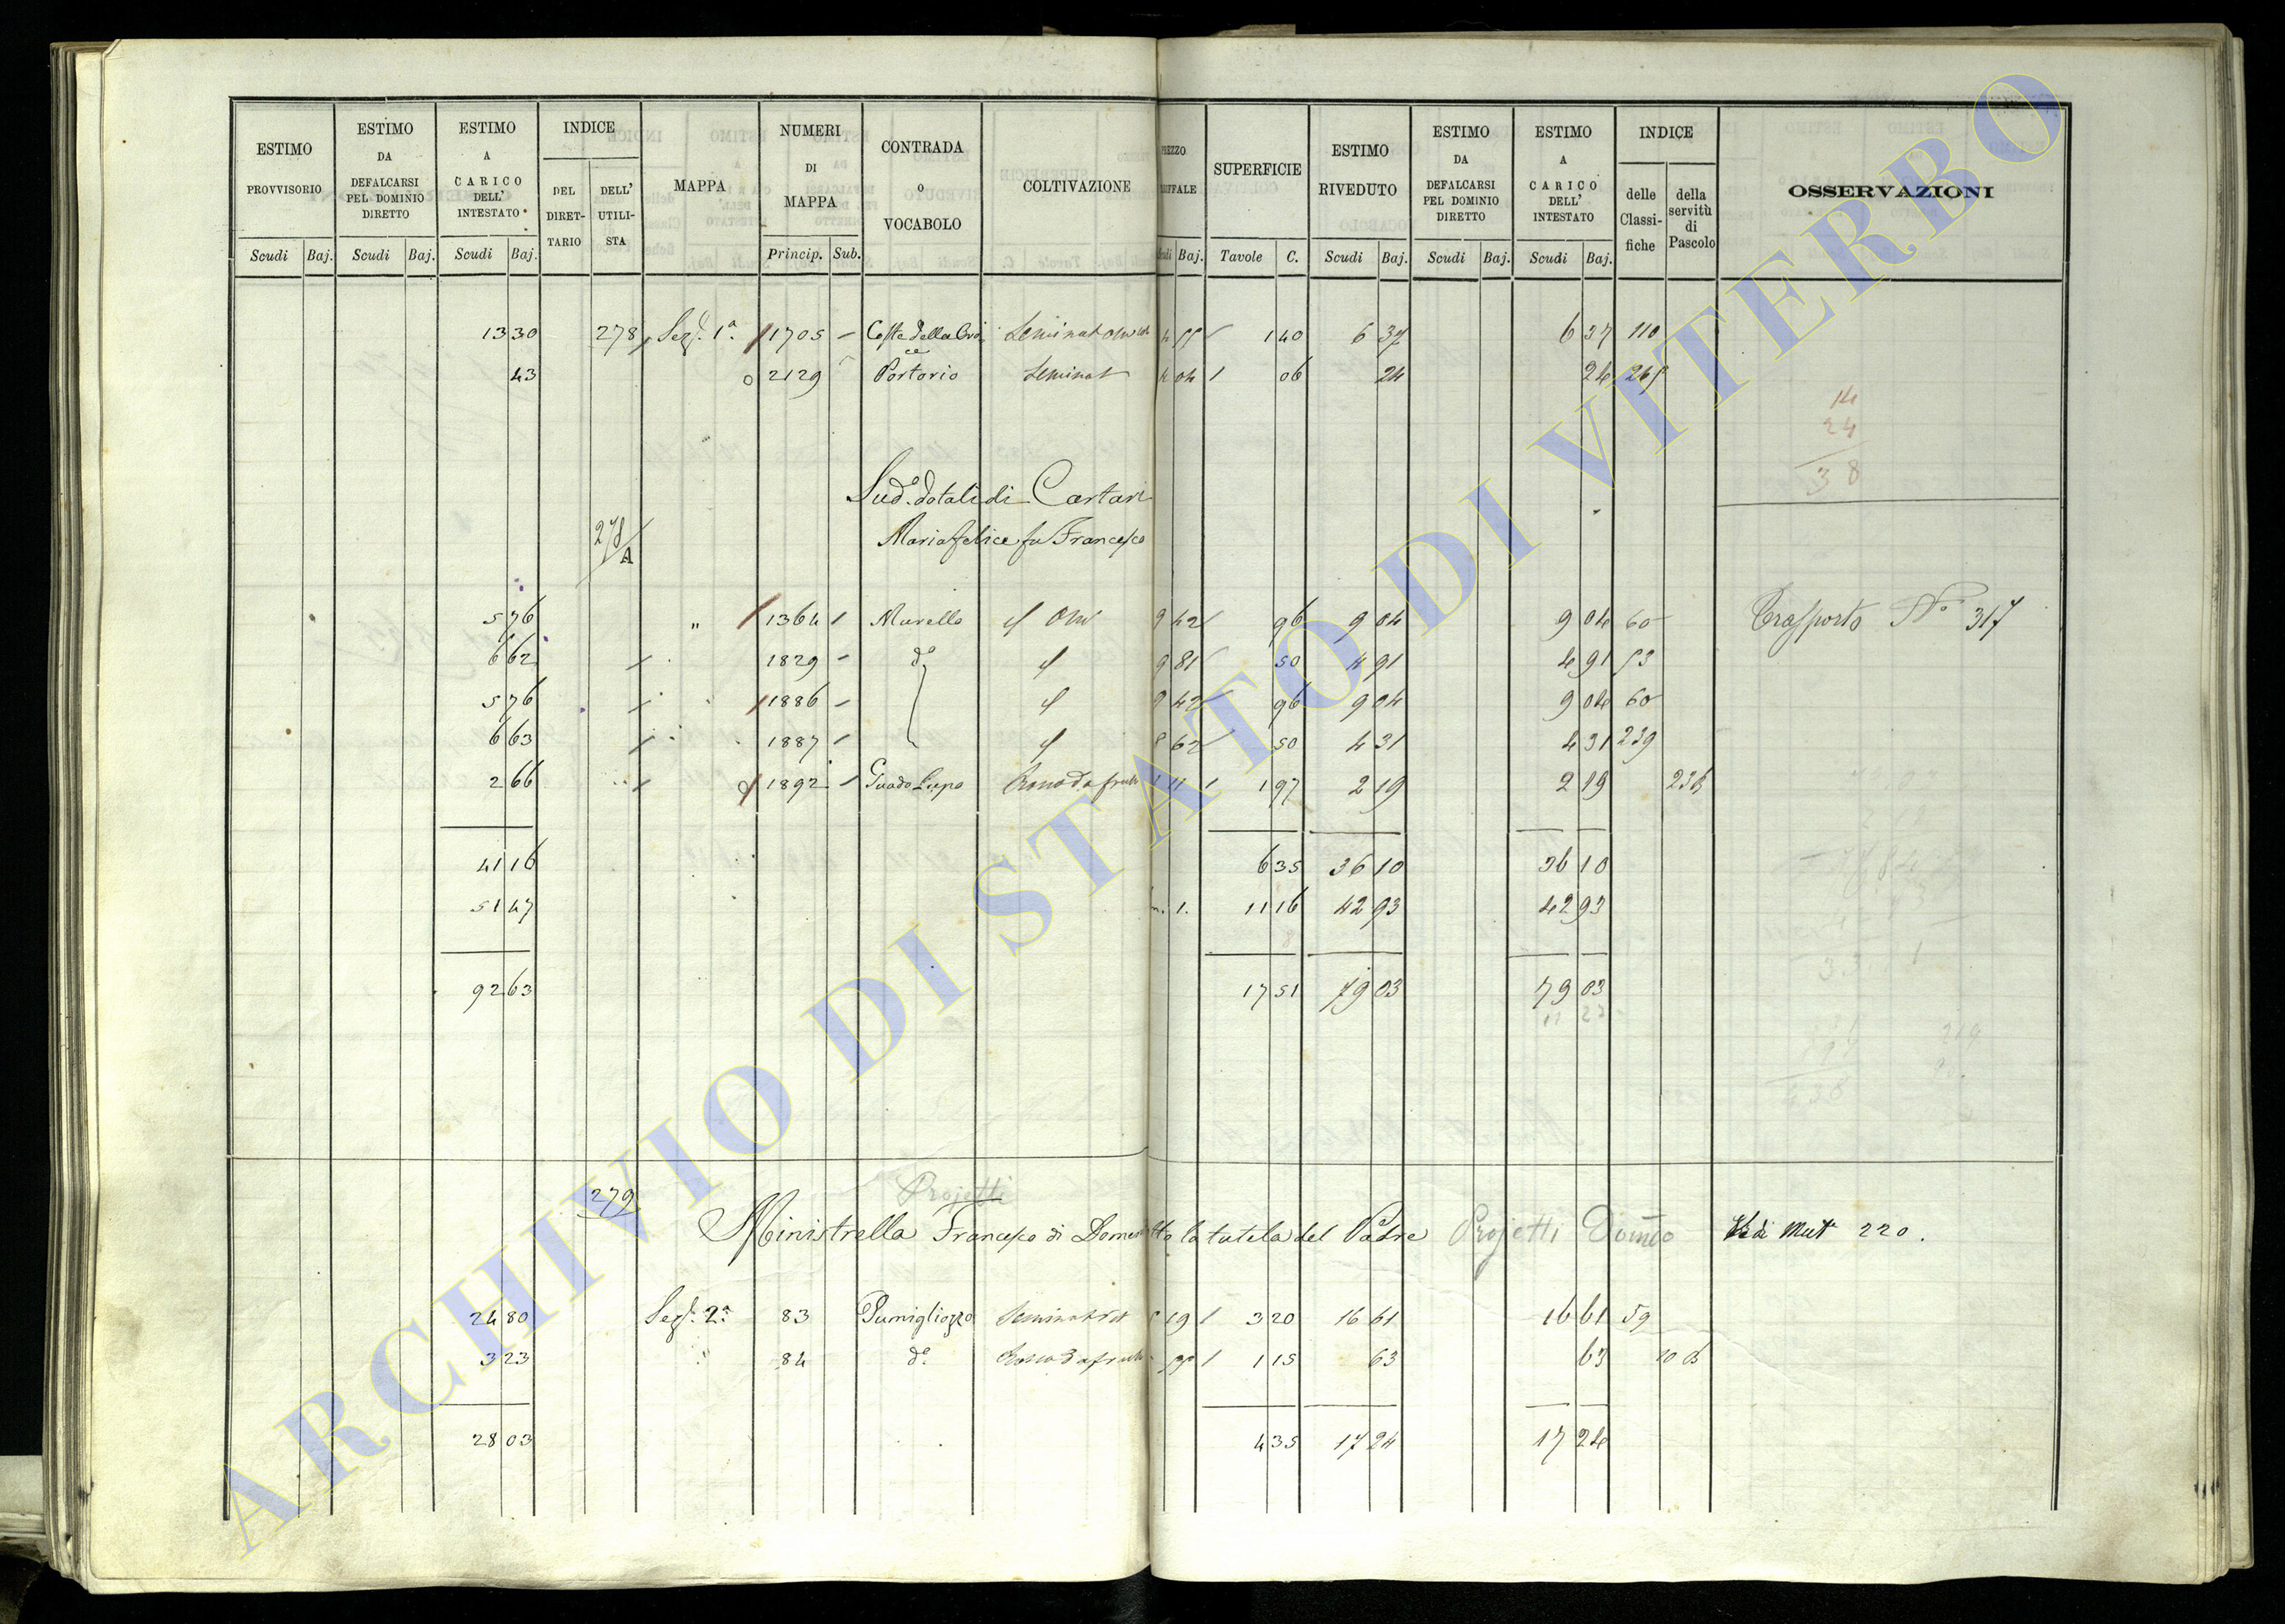 ESTIMO PROVVISORIO | ESTIMO DA DEFALCARSI PEL DOMINIO DIRETTO | ESTIMO A CARICO DELL' INTESTATO | INDICE DEL DIRETTARIO | DELL' UTILISTA | MAPPA | NUMERI DI MAPPA | CONTRADA O VOCABOLO | COLTIVAZIONE | SUPERFICIE | ESTIMO RIVEDUTO | ESTIMO DA DEFALCARSI PEL DOMINIO DIRETTO | ESTIMO A CARICO DELL' INTESTATO | INDICE delle Classifiche | della servitù di Pascolo | OSSERVAZIONI
Scudi Baj. | Scudi Baj. | Scudi Baj. | Princip. Sub. | Baj. | Tavole C. | Scudi Baj. | Scudi Baj. | Scudi Baj.
13 30 278 Sez. 1a 1705 Coste della Croce 1 40 6 37 6 37 110
43 2129 Portorio Seminat 04 06 24 24
14
24
38
Sud. dotali di Cartari
278/A Mariafelice fu Francesco
5 76 " 1364 Murella 9 42 96 9 04 9 04 60 Trasporto No 317
6 62 1829 do 9 81 50 4 91 4 91 53
5 76 1886 9 42 96 9 04 9 04 60
6 63 1887 62 50 4 31 4 31 239
2 66 1892 Guado Lupo 11 1 97 2 19 2 19
41 16 6 35 36 10 36 10
51 47 11 16 42 93 42 93
92 63 17 51 79 03 79 03
Projetti
279 Ministrella Francesco di Domen tto la tutela del Padre Projetti Domco Vedi Mut 220.
24 80 Sez. 2a 83 Pumigliozzo 19 3 20 16 61 16 61 59
3 23 84 do 1 15 63 63
28 03 4 35 17 24 17 24
ARCHIVIO DI STATO DI VITERBO